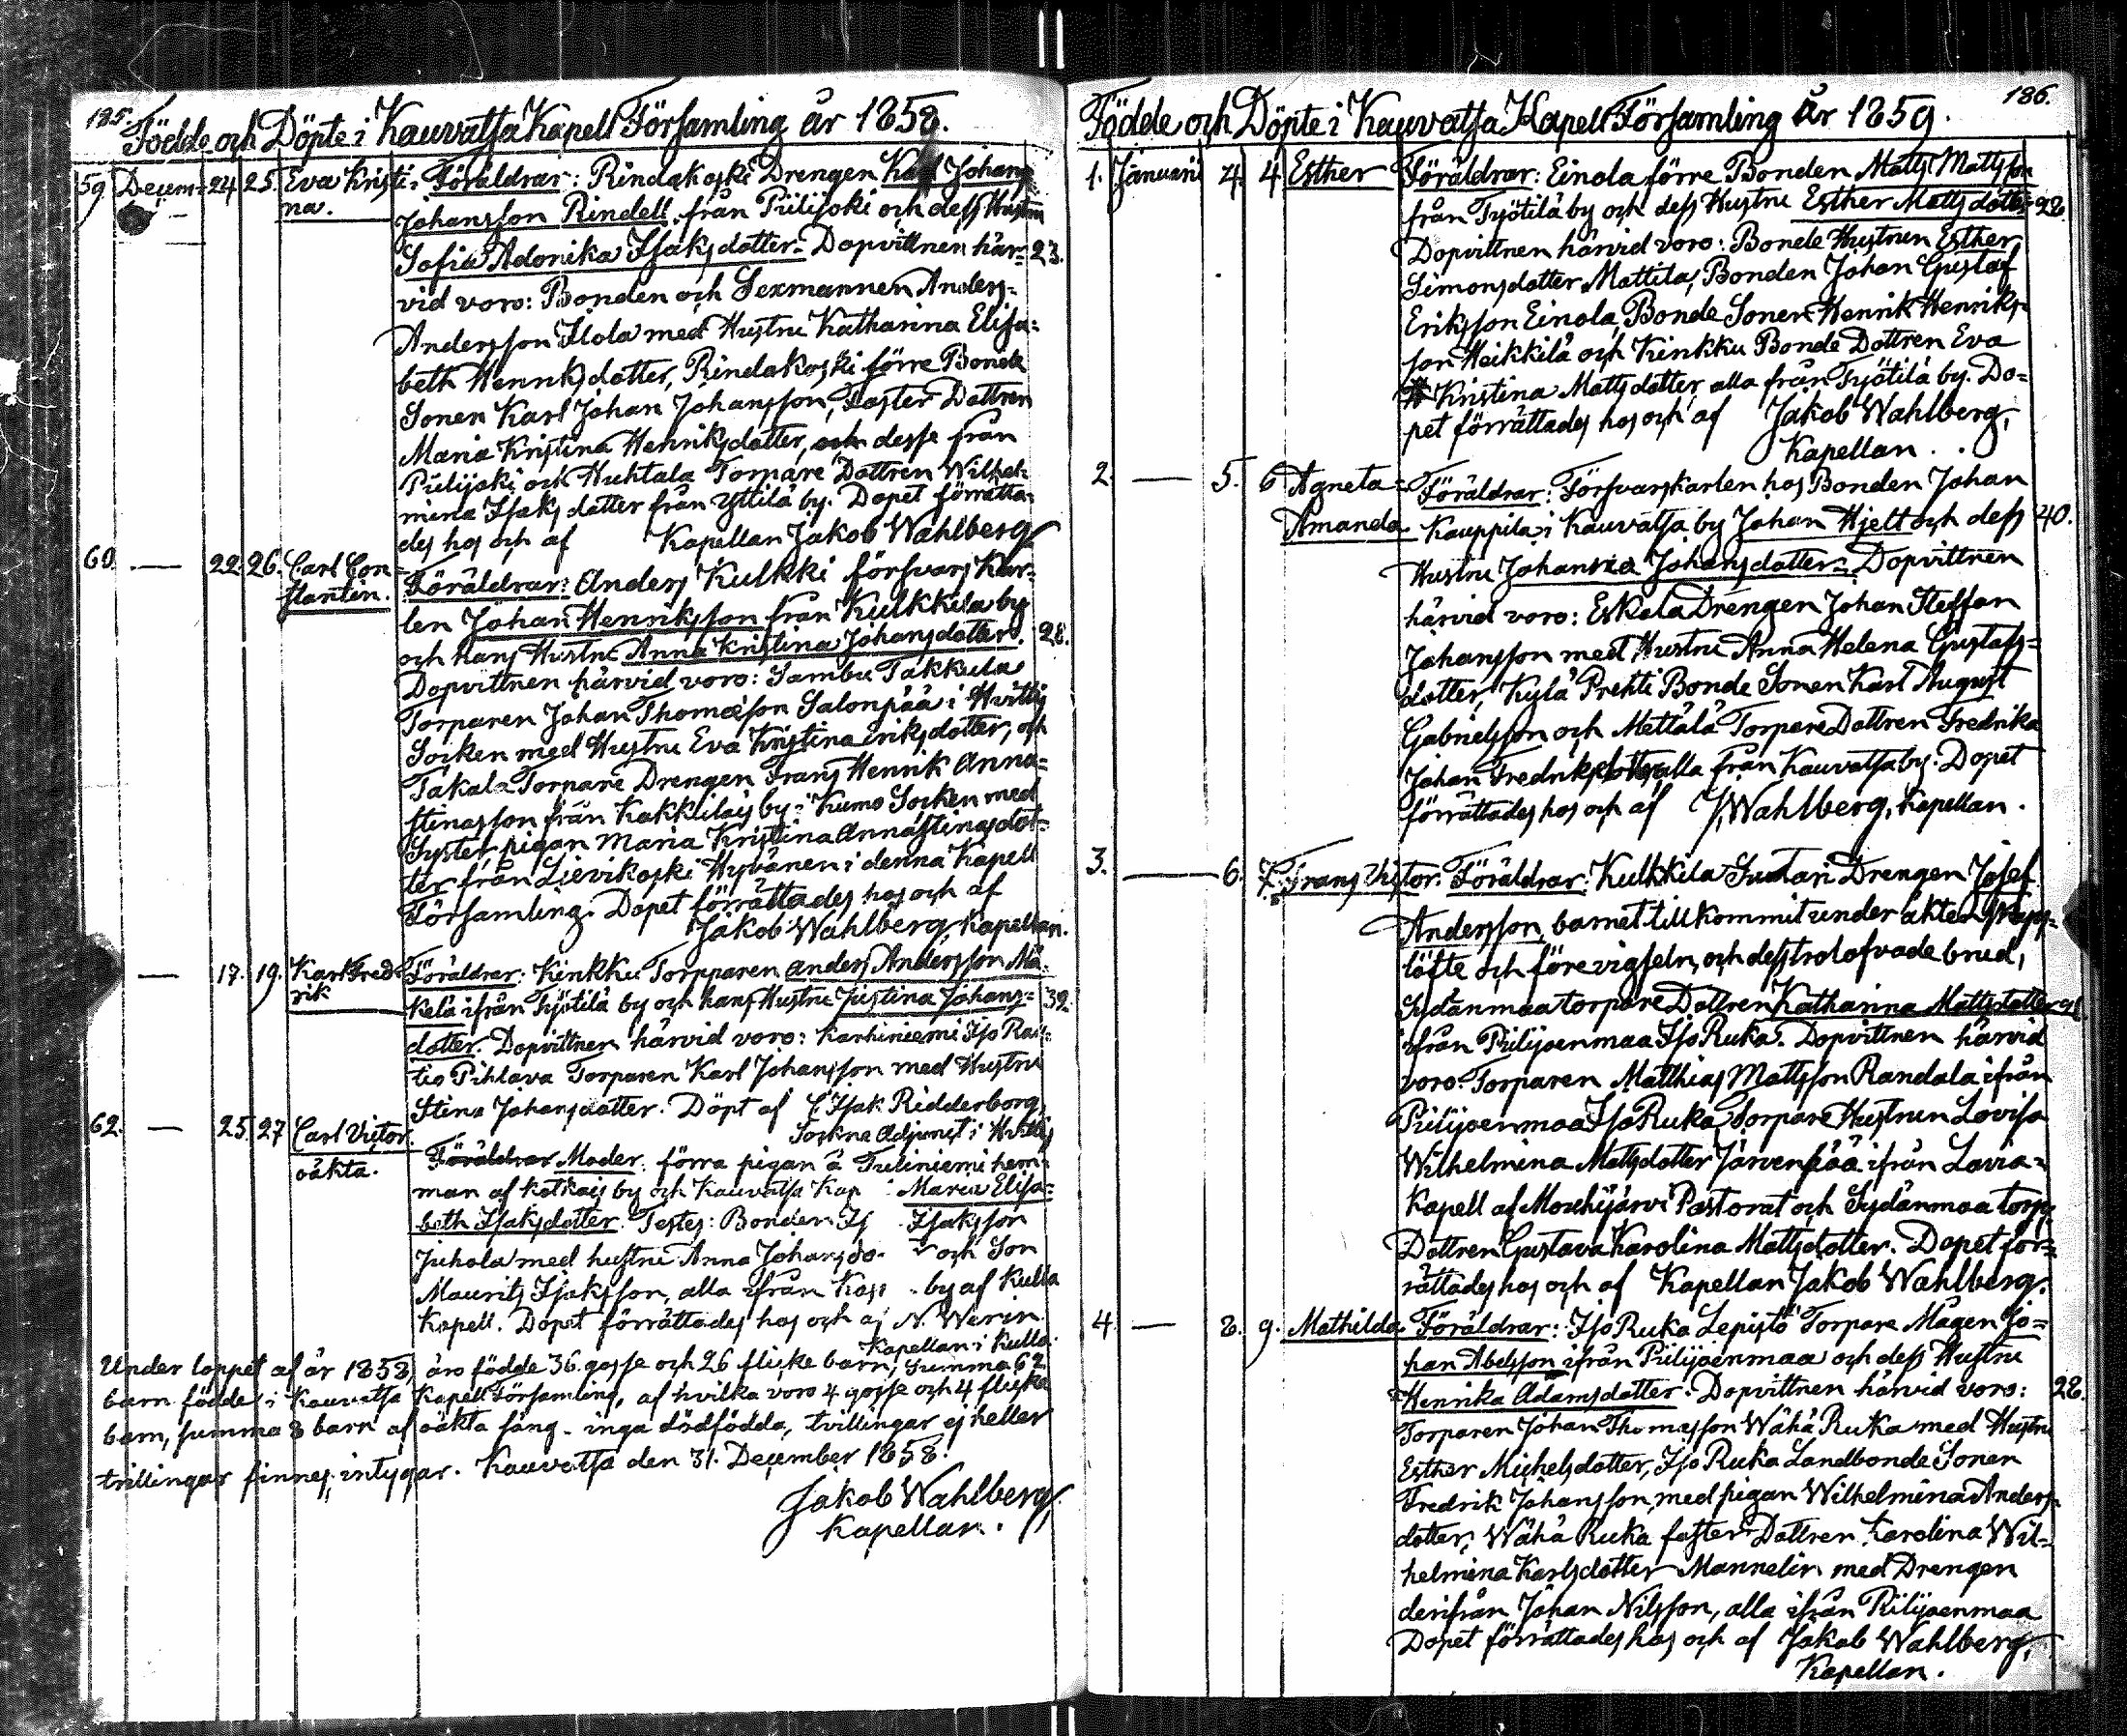 185.
Födde och Döpte i Kauvatsa Kapell Församling år 1858.
59. Decem= 24 25. Eva Kristi= Föräldrar: Rindakoski Drengen Karl Johan
na. Johansson Rindell från Piilijoki och dess Hustru
Sofia Adonika Isaksdotter. Dopvittnen här= 23.
vid voro: Bonden och Sexmannen Anders
Andersson Ilola med Hustru Katharina Elisa=
beth Henriksdotter, Rindakoski förre Bonde
Sonen Karl Johan Johansson, Foster Dottren
Maria Kristina Henriksdotter, desse från
Piilijoki och Huhtala Torpare Dottren Wilhel=
mina Isaksdotter från Yttilä by. Dopet förrätta=
des hos och af Kapellan Jakob Wahlberg
60. — 22. 26. Carl Con=
stantin. Föräldrar: Anders Kulkki försvars Kar=
len Johan Henriksson från Kulkkila by
och hans Hustru Anna Kristina Johansdotter. 28.
Dopvittnen härvid voro: Sambu Takkula
Torparen Johan Thomæson Salonpää i Hvittis
Socken med Hustru Eva Kristina Eriksdotter, och
Takala Torpare Drengen Frans Henrik Anna=
stinasson från Kakkilais by i Kumo Socken med
Syster pigan Maria Kristina Annastinasdot=
ter från Lievikoski Hyvänen i denna Kapell
Församling. Dopet förrättades hos och af
Jakob Wahlberg, Kapellan.
— 17. 19. Karl Fred=
rik Föräldrar: Kinkku Torpparen Anders Andersson Mä=
kelä ifrån Työtilä by och hans Hustru Justina Johans= 39.
dotter. Dopvittnen härvid voro: Karhiniemi Iso Rau=
tio Pihlava Torparen Karl Johansson med Hustru
Stina Johansdotter. Döpt af C. Isak Ridderborg,
Sockne Adjunct i Hvittis
62. — 25. 27 Carl Victor.
oäkta. Föräldrar Moder: förra pigan å Tuliniemi hem=
man af Kotkais by och Kauvatsa Kap Maria Elisa=
beth Isaksdotter. Testes: Bonden Isaksson
Juhola med hustru Anna Johansdo och Son
Maurits Isaksson, alla ifrån by af Kulla
Kapell. Dopet förrättades hos och af N. Werin
Kapellan i Kulla.
Under loppet af år 1858, äro födde 36. gosse och 26 flicke barn, Summa 62
barn födde i Kauvatsa Kapell Församling, af hvilka voro 4 gosse och 4 flicke
barn, summa 8 barn af oäkta säng. inga dödfödda, tvillingar ej heller
trillingar finnes, intygar. Kauvatsa den 31. December 1858.
Jakob Wahlberg,
Kapellan.
186.
Födde och Döpte i Kauvatsa Kapell Församling År 1859.
1. Januari 4. 4 Esther Föräldrar: Einola förre Bonden Matts Mattsson
från Työtilä by och dess Hustru Esther Mattsdotter 28.
Dopvittnen härvid voro: Bonde Hustrun Esther
Simonsdotter Mattila, Bonden Johan Gustaf
Eriksson Einola, Bonde Sonen Henrik Henriks=
son Heikkilä och Kinkku Bonde Dottren Eva
Kristina Mattsdotter, alla från Työtilä by. Do=
pet förrättades hos och af Jakob Wahlberg,
Kapellan.
2. — 5. 6 Agneta= Föräldrar: Försvarskarlen hos Bonden Johan
Amanda Kauppila i Kauvatsa by Johan Hjelt och dess 40.
Hustru Johanna Johansdotter. Dopvittnen
härvid voro: Eskola Drengen Johan Steffan
Johansson med Hustru Anna Helena Gustafs=
dotter, Kylä Prehti Bonde Sonen Karl August
Gabrielsson och Mettälä Torpare Dottren Fredrika
Johan Fredriksdotter, alla från Kauvatsa by. Dopet
förrättades hos och af J. Wahlberg, Kapellan.
3. — 6. 7. Frans Victor. Föräldrar: Kulkkila Suutari Drengen Josef
Andersson, barnet tillkommit under äktenskaps=
löfte och före vigseln, och dess trolofvade brud,
Sydänmaa torpare Dottren Katharina Mattsdotter
ifrån Piilijoenmaa Iso Ruka. Dopvittnen härvid
voro: Torparen Matthias Mattsson Randala ifrån
Piilijoenmaa Iso Ruka, Torpare Hustrun Lovisa
Wilhelmina Mattsdotter Järvenpää ifrån Lavia=
Kapell af Mouhijärvi Pastorat och Sydänmaa torp.
Dottren Gustava Karolina Mattsdotter. Dopet för=
rättades hos och af Kapellan Jakob Wahlberg.
4. — 8. 9. Mathilda Föräldrar: Iso Ruka Lepistö Torpare Mågen Jo=
han Abelsson ifrån Piilijoenmaa och dess Hustru
Henrika Adamsdotter. Dopvittnen härvid voro: 28.
Torparen Johan Thomasson Wähä Ruka med Hustru
Esther Michelsdotter, Iso Ruka Landbonde Sonen
Fredrik Johansson, med pigan Wilhelmina Anders=
dotter, Wähä Ruka foster Dottren Karolina Wil=
helmina Karlsdotter Mannelin med Drengen
derifrån Johan Nilsson, alla ifrån Piilijoenmaa
Dopet förrättades hos och af Jakob Wahlberg,
Kapellan.